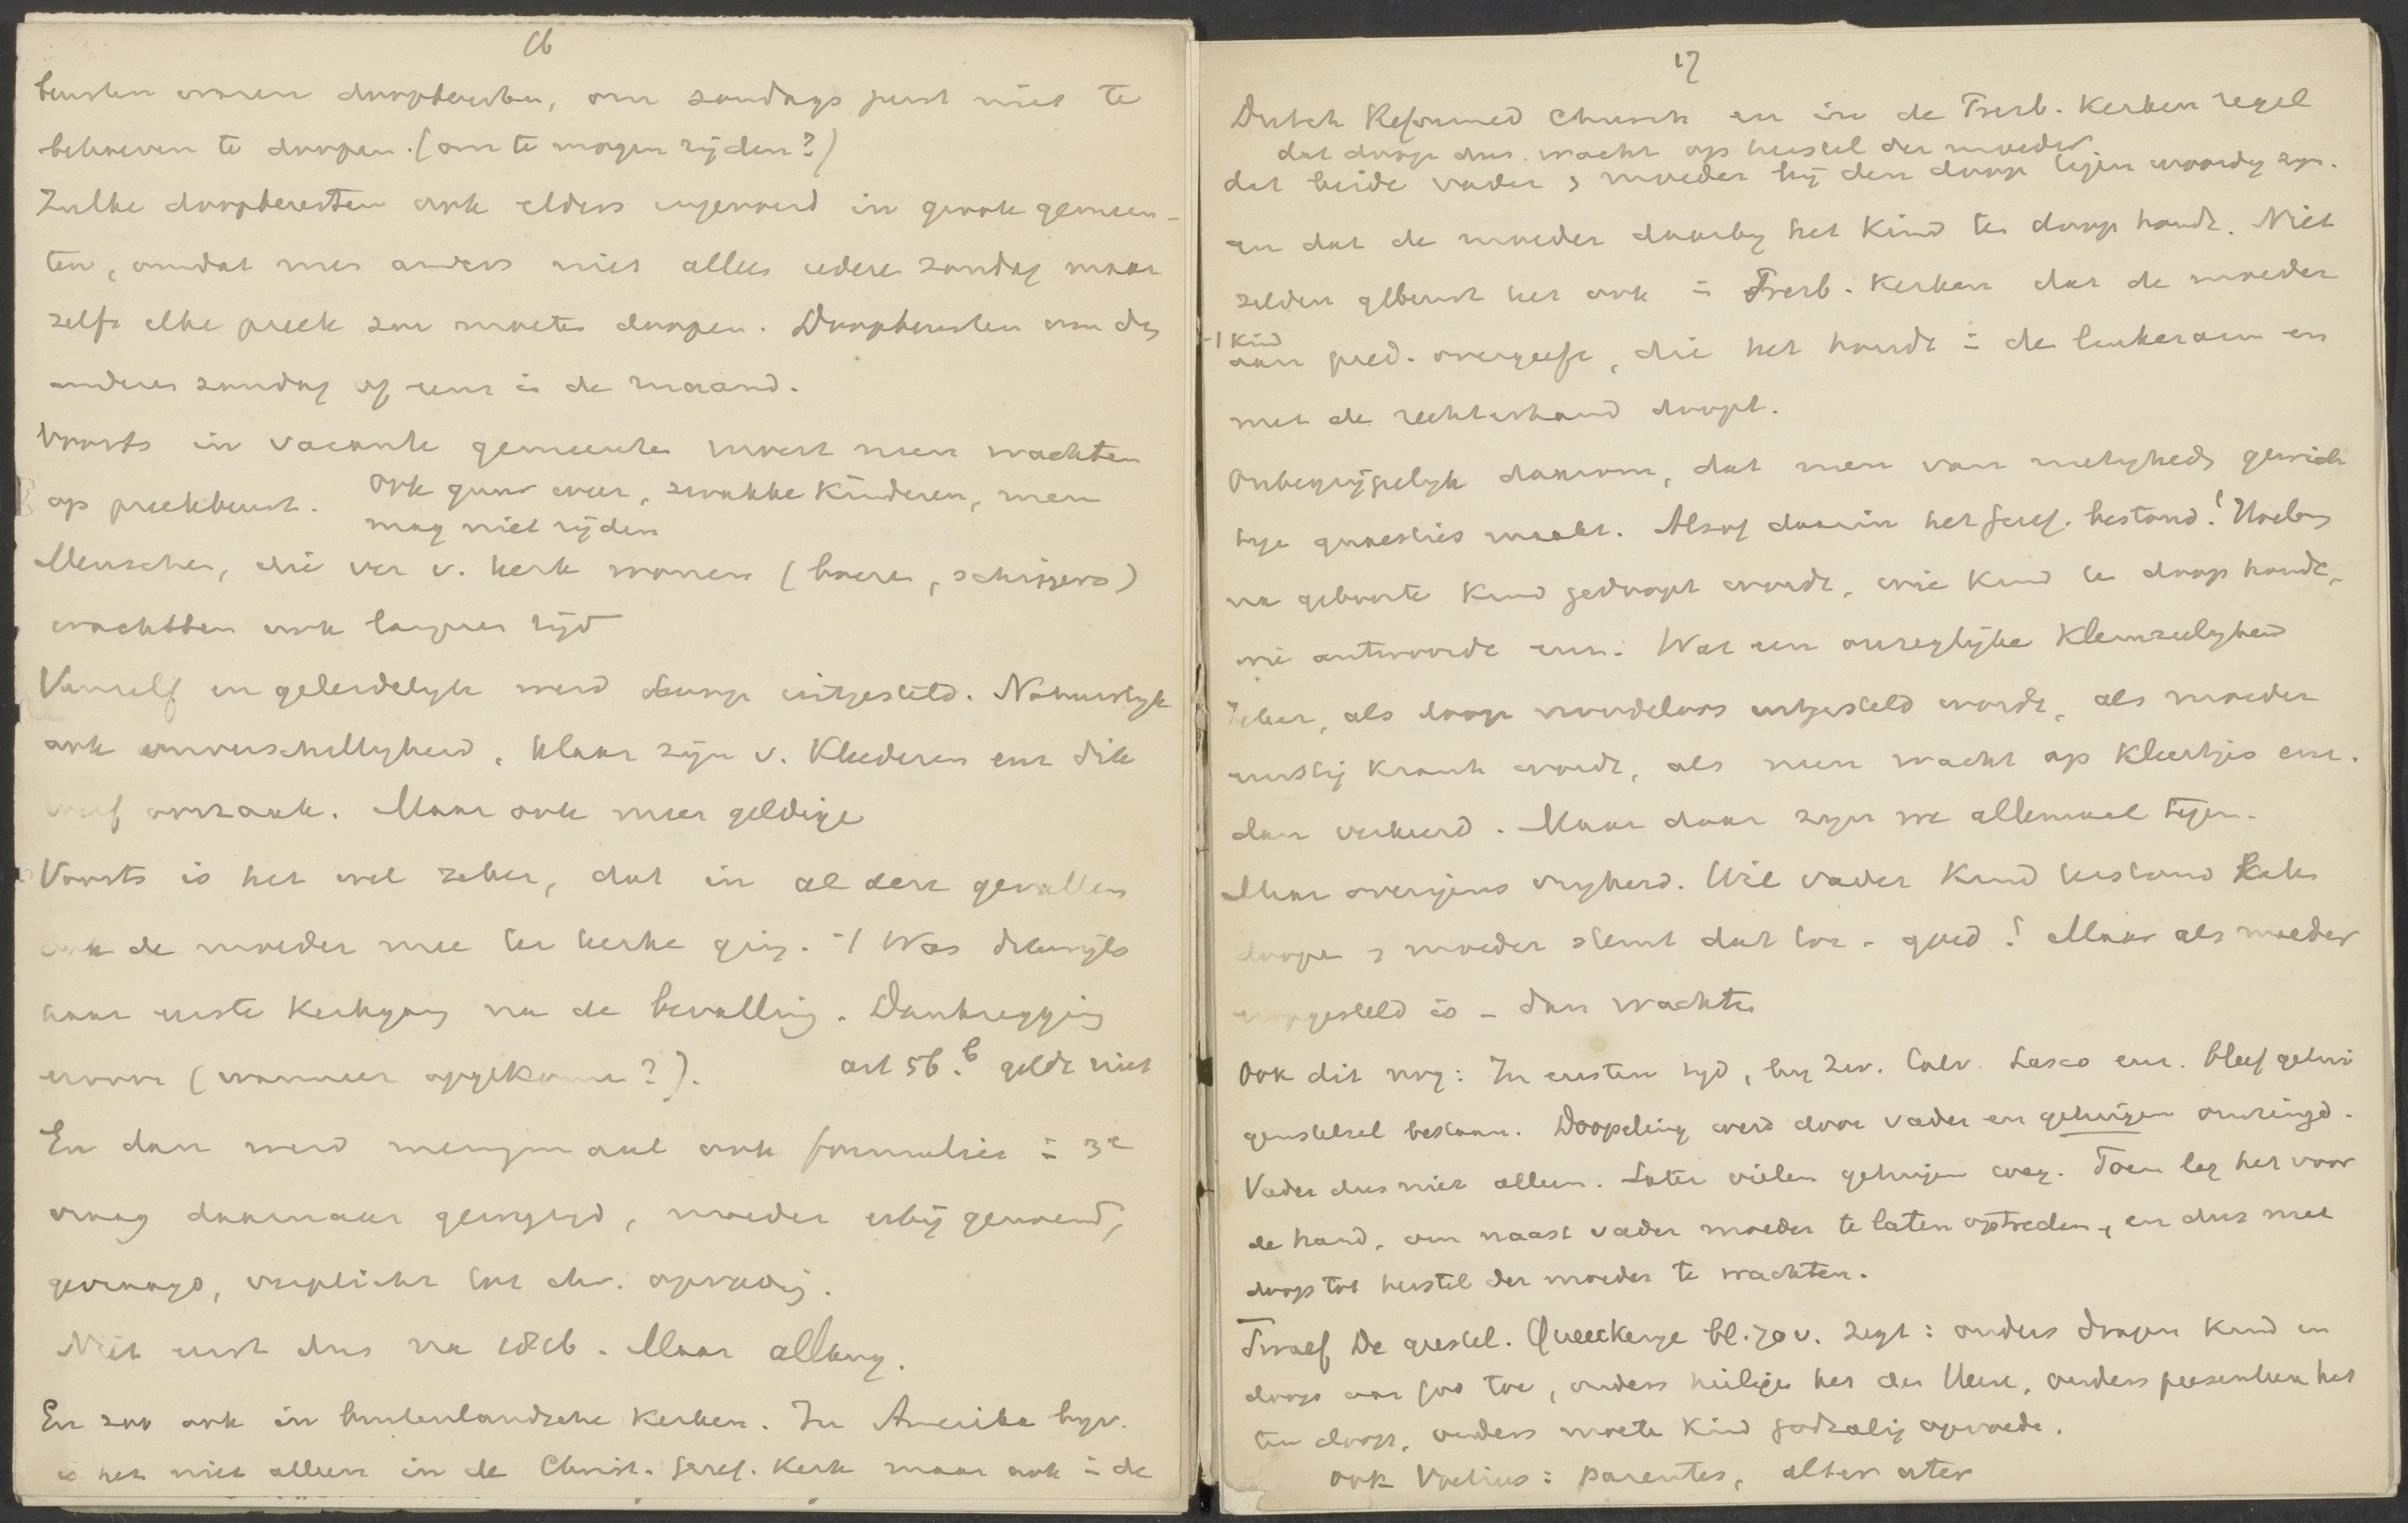 16
beurten waren doopbeurten, om zondags juist niet te
behoeven te doopen. (om te mogen rijden?)
Zulke doopbeurten ook elders ingevoerd in groote gemeen-
ten, omdat men anders niet alleen iedere zondag maar
zelfs elke preek zou moeten doopen. Doopbeurten om den
anderen zondag of eens in de maand.
Voorts in vacante gemeenten moest men wachten
op preekbeurt. Ook guur weer, zwakke kinderen, men
mag niet rijden
Menschen, die ver v. kerk wonen (boeren, schippers)
wachtten ook langeren tijd
Vanzelf en geleidelijk werd doop uitgesteld. Natuurlijk
ook onverschilligheid, klaar zijn v. kleederen enz dik
werf oorzaak. Maar ook meer geldige
Voorts is het wel zeker, dat in al deze gevallen
ook de moeder mee ter kerke ging. -/ Was dikwijls
haar eerste kerkgang na de bevalling. Dankzegging
ervoor (wanneer opgekomen?). art 56.b geldt niet
En dan werd menigmaal ook formulier = 3e
vraag daarnaar gewijzigd, moeder erbij genoemd,
gevraagd, verplicht tot chr. opvoeding.
Niet eerst dus na 1816. Maar allang.
En zoo ook in buitenlandsche kerken. In Amerika bijv.
is het niet alleen in de Christ. Geref. Kerk maar ook = de
17
Dutch Reformed Church en in de Presb. Kerken regel
dat doop dus wacht op herstel der moeder
dat beide vader & moeder bij den doop tegenwoordig zijn.
en dat de moeder daarbij het kind ten doop houdt. Niet
zelden gebeurt het ook = Presb. Kerken dat de moeder
-/ kind
aan pred. overgeeft, die het houdt = de linkerarm en
met de rechterhand doopt.
Onbegrijpelijk daarom, dat men van nietigheden gewich
tige quaesties maakt. Alsof daarin het geref. bestond! Hoelang
na geboorte kind gedoopt wordt, wie kind ten doop houdt,
wie antwoordt enz. Wat een onzeglijke kleinzieligheid
Zeker, als doop noodeloos uitgesteld wordt, als moeder
ernstig krank wordt, als men wacht op kleertjes enz.
dan verkeerd. Maar daar zijn we allemaal tegen.
Maar overigens vrijheid. Wil vader kind terstond laten
doopen & moeder stemt dat toe - goed! Maar als moeder
erop gesteld is - dan wachten
Ook dit nog: In eersten tijd, bij Zw. Calv. Lasco enz. bleef getui
genstelsel bestaan. Doopeling werd door vader en getuigen omringd.
Vader dus niet alleen. Later vielen getuigen weg. Toen lag het voor
de hand, om naast vader moeder te laten optreden, en dus met
doop tot herstel der moeder te wachten.
Twaalf De geestel. Queeckerye bl. 70 v. zegt: ouders dragen kind in
doop aan God toe, ouders heiligen het den Heere, ouders presenteeren het
ten doop, ouders moeten kind godzalig opvoeden.
ook Voetius: parentes, alteruter